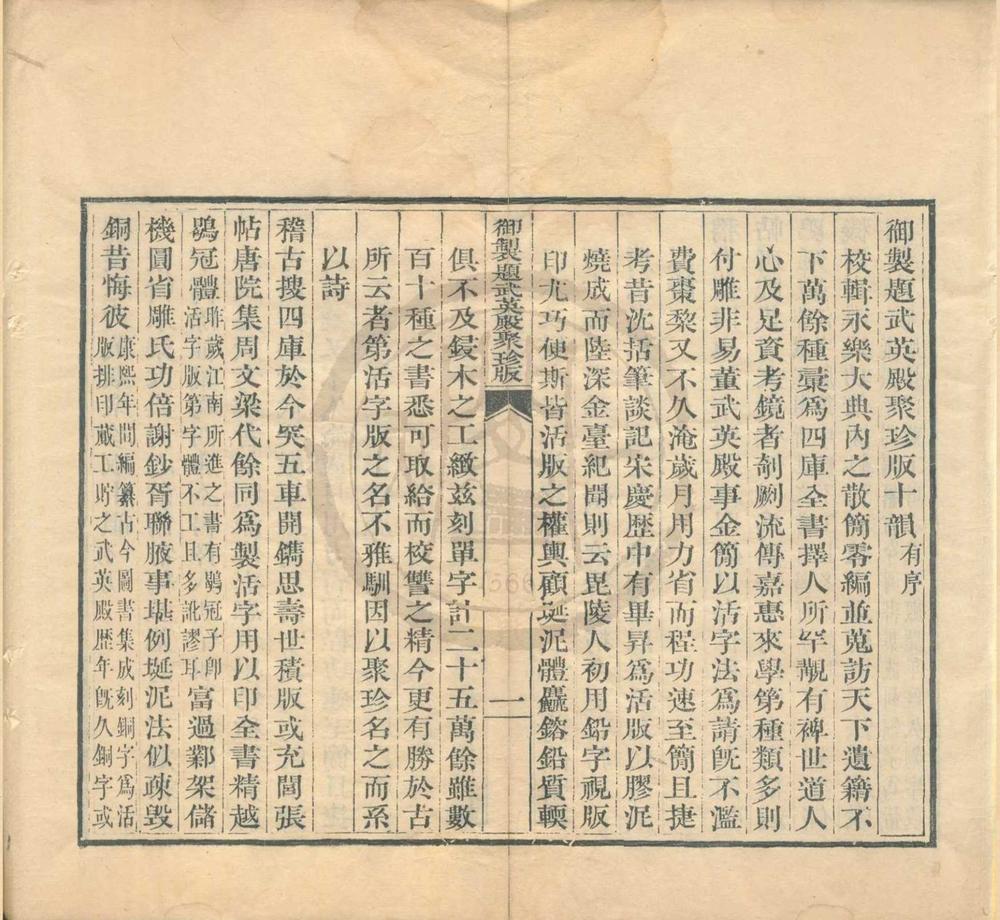 御製題武英殿聚珍版十韻有序
校輯永樂大典內之散簡零編並蒐訪天下遺籍不
下萬餘種彚爲四庫全書擇人所罕覯有裨世道人
心及足資考鏡者剞劂流傳嘉惠來學第種類多則
付雕非易董武英殿事金簡以活字法爲請旣不濫
費棗梨又不久淹歲月用力省而程功速至簡且捷
考昔沈括筆談記宋慶歷中有畢昇爲活版以膠泥
燒成而陸深金臺紀聞則云毘陵人初用鉛字視版
印尤巧便斯皆活版之權輿顧埏泥體麤鎔鉛質輭
御製題武英殿聚珍版
一
俱不及鋟木之工緻兹刻單字計二十五萬餘雖數
百十種之書悉可取給而校讐之精今更有勝於古
所云者第活字版之名不雅馴因以聚珍名之而系
以詩
稽古搜四庫於今突五車開鐫思壽世積版或充閭張
帖唐院集周文梁代餘同爲製活字用以印全書精越
鶡冠體昨歲江南所進之書有鶡冠子卽活字版第字體不工且多訛謬耳富過鄴架儲
機圓省雕氏功倍謝鈔胥聯腋事堪例埏泥法似疎毁
銅昔悔彼康熙年間編纂古今圖書集成刻銅字爲活版排印蕆工貯之武英殿歷年旣久銅字或